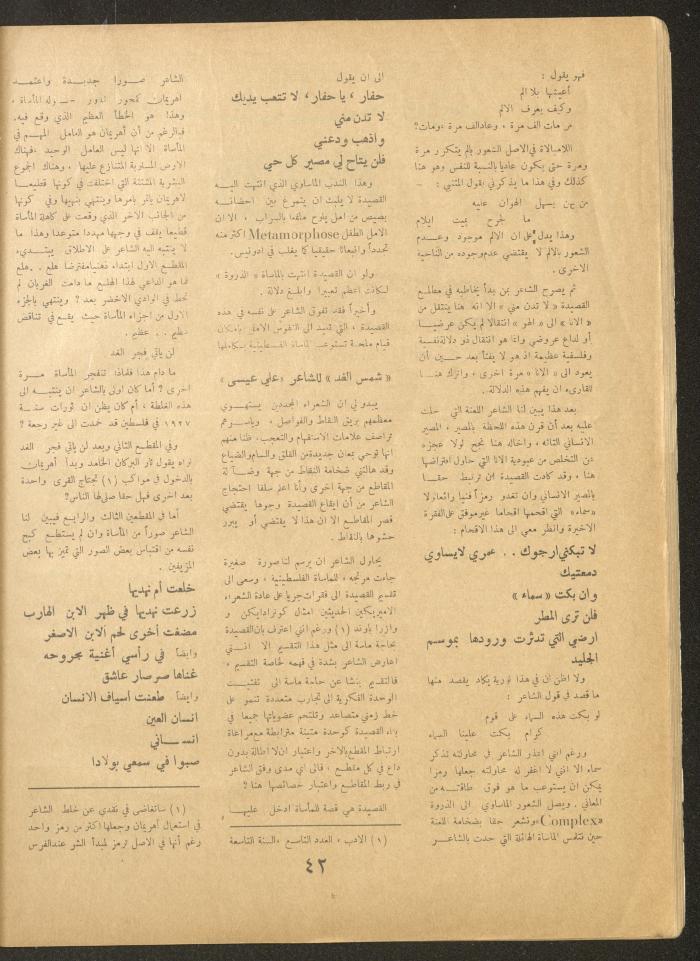 فهو يقول :
أعيشها بلا الم
وكيف يعرف الالم
من مات الف مرة ، وعاد الف مرة ، ومات؟
اللامبالاة في الاصل الشعور بألم يتكرر مرة
ومرة حتى يكون عاديا بالنسبة للنفس وهو هنا
كذلك وفي هذا ما يذكرني بقول المتنبي : -
من يهن يسهل الهوان عليه
ما لجرح بميت ايلام
وهذا يدل على ان الالم موجود وعدم
الشعور بالالم لا يقتضي عدم وجوده من الناحية
الاخرى .
ثم يصرح الشاعر بمن بدأ يخاطبه في مطلع
القصيدة « لا تدن مني » الا انه هنا ينتقل من
« الانا » الى « الهو » انتقالا لم يكن عرضيا
أو لداع عروضي وانما هو انتقال ذو دلالة نفسية
وفلسفية عظيمة اذ هو لا يفتأ بعد حين أن
يعود الى « الانا » مرة اخرى ، واترك هنا
للقارىء ان يفهم هذه الدلالة .
بعد هذا يبين لنا الشاعر اللعنة التي حلت
عليه بعد أن قرن هذه اللحظة بالمصير ، المصير
الانساني التائه ، واخاله هنا نجح لولا عجزه
عن التخلص من عبودية الانا التي حاول افتراضها
هنا ، وقد كادت القصيدة ان ترتبط حقا
بالمصير الانساني وان تغدو رمزاً فنيا رائعا لولا
«سماء» التي اقحمها اقحاما غير موفق على الفقرة
الاخيرة وانظر معي الى هذا الاقحام :
لا تبكني ارجوك . . عمري لايساوي
دمعتيك
وان بكت « سماء »
فلن ترى المطر
ارضي التي تدثرت ورودها بموسم
الجليد
ولا اظن ان في هذا تورية يكاد يقصد منها
ما قصد في قول الشاعر :
لو بكت هذه السماء على قوم
كرام بكت علينا السماء
ورغم انني اعتذر الشاعر في محاولته تذكر
سماء الا انني لا اغفر له محاولته جعلها رمزا
يمكن ان يستوعب ما هو فوق طاقته من
المعاني . ويصل الشعور المأساوي الى الذروة
«Complex» ونشعر حقا بضخامة اللعنة
حين نتلمس المأساة الهائلة التي حدت بالشاعر
الى ان يقول
حفار ، يا حفار، لا تتعب يديك
لا تدن مني
واذهب ودعني
فلن يتاح لي مصير كل حي
وهذا الندب المأساوي الذي انتهت اليه
القصيدة لا يلبث ان يتموج بين احضانه
بصيص من امل يلوح ملفعا بالسراب ، الا ان
الامل الطفل Metamorphose اكثر منه
تجدداً وانبعاثا حقيقيا كما يغلب في ادونيس .
ولو ان القصيدة انتهت بالمأساة « الذروة »
لكانت اعظم تعبيرا وابلغ دلالة .
وأخيراً فقد تفوق الشاعر على نفسه في هذه
القصيدة ، التي تشيد الى النفوس الامل بامكان
قيام ملحمة تستوعب المأساة الفلسطينية بكاملها
« شمس الغد » للشاعر «علي عيسى»
يبدو لي ان الشعراء المجددين يستهوي
معظمهم بريق النقاط والفواصل ، ويأسرهم
تراصف علامات الاستفهام والتعجب، ظنا منهم
انها توحي بمعان جديدة من القلق والسأم والضياع
وقد هالتني ضخامة النقاط من جهة وضآلة
المقاطع من جهة اخرى وانا اعلم سلفا احتجاج
الشاعر من أن ايقاع القصيدة وجوها يقتضي
قصر المقاطع الا ان هذا لا يقتضي أو يبرر
حشوها بالنقاط .
يحاول الشاعر ان يرسم لنا صورة صغيرة
جاءت مرتجة ، للمأساة الفلسطينية ، وسعى الى
تقسيم القصيدة الى فقرات جريا على عادة الشعراء
الاميركيين الحديثين امثال كونراد ايكن و
وازرا باوند (١) ورغم انني اعترف بان القصيدة
بحاجة ماسة الى مثل هذا التقسيم الا انني
اعارض الشاعر بشدة في فهمه لخاصة التقسيم ،
فالتقسيم ينشأ عن حاجة ماسة الى تفتيت
الوحدة الفكرية الى تجارب متعددة تنمو على
خط زمني متصاعد وتلتحم عضوياتها جميعا في
بناء القصيدة كوحدة متينة مترابطة مع مراعاة
ارتباط المقطع بالآخر واعتبار ان لا اطالة بدون
داع في كل مقطع ، فالى اي مدى وفق الشاعر
في ربط المقاطع واعتبار خصائصها هنا؟
القصيدة هي قصة للمأساة ادخل عليها
(١) الادب ، العدد التاسع ، السنة التاسعة
الشاعر صورا جديدة واعتمد
اهريمان كمحور تدور حوله المأساة ،
وهذا هو الخطأ العظيم الذي وقع فيه.
فبالرغم من أن أهريمان هو العامل المهم في
المأساة الا انها ليس العامل الوحيد ،فهناك
الارض السليبة المتنازع عليها ، وهناك الجموع
البشرية المشتتة التي اختلفت في كونها قطيعا
لاهريمان يأتمر بأمرها وينتهي بنهيها وفي كونها
من الجانب الاخر الذي وقعت على كاهله المأساة
قطيعا يقف في وجهها مهددا متوعدا وهذا ما
لا ينتبه اليه الشاعر على الاطلاق يبتدىء
المقطع الاول ابتداء ذهنيا مفترضا هلع . . هلع
فما هو الداعي لهذا الهلع ما دامت الغربان لم
تحط في الوادي الاخضر بعد ? وينتهي بالجزء
الاول من اجزاء المأساة حيث يقع في تناقض
عظيم . . عظيم .
لن يأتي فجر الغد
ما دام هذا فلماذا تنفجر المأساة مرة
اخرى ? أما كان اولى بالشاعر ان ينتبه الى
هذه الغلطة ، أم كان يظن ان ثورات سنة
١٩٢٧ في فلسطين قد خمدت الى غير رجعة ?
وفي المقطع الثاني وبعد لن يأتي فجر الغد
نراه يقول ثار البركان الخامد وبدأ أهريمان
بالدخول في مواكب (١) تجتاح القرى واحدة
بعد اخرى فهل حقا صلى لها الناس؟
أما في المقطعين الثالث والرابع فيبين لنا
الشاعر صوراً من المأساة وان لم يستطع كبح
نفسه من اقتباس بعض الصور التي تميز بها بعض
المزيفين .
خلعت أم نهديها
زرعت نهديها في ظهر الابن الهارب
مضغت أخرى لحم الابن الاصغر
وايضاً في رأسي أغنية مجروحه
غناها صرصار عاشق
وايضاً طعنت أسياف الانسان
انسان العين
انساني
صبوا في سمعي بولادا
(١) سأتغاضى في نقدي عن خلط الشاعر
في استعمال أهريمان وجعلها اكثر من رمز واحد
رغم أنها في الاصل ترمز لمبدأ الشر عند الفرس
٤٢